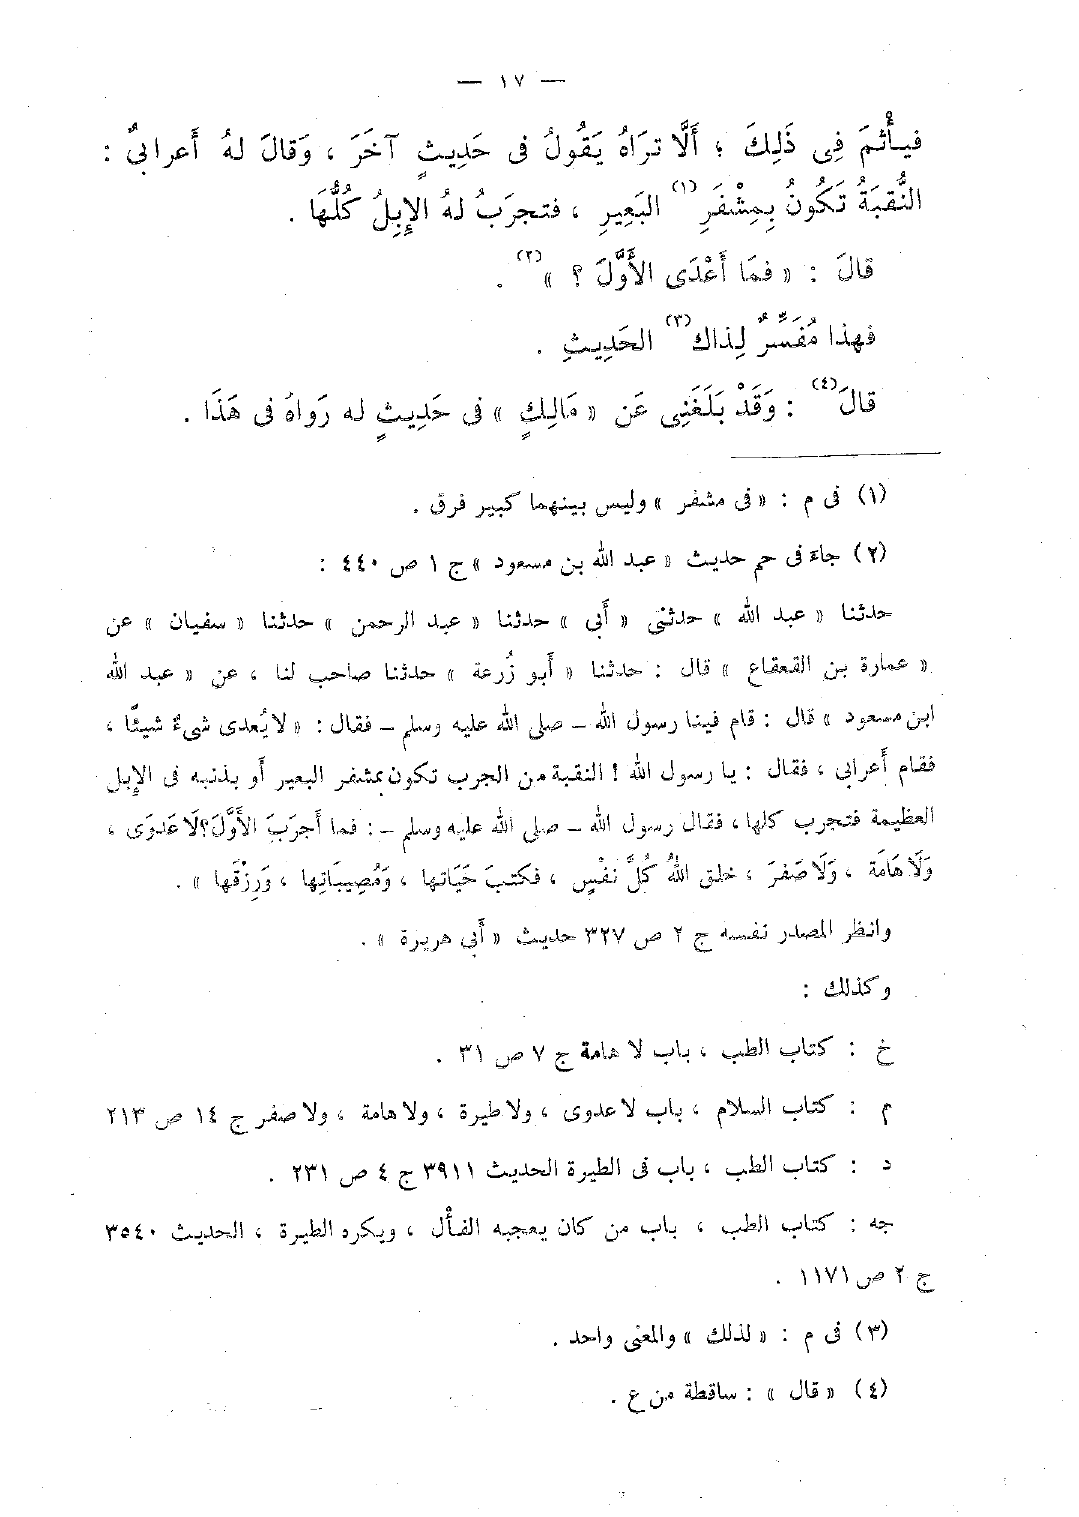 — ١٧ —
فيأْثمَ فِى ذَلِكَ ؛ أَلَّا ترَاهُ يَقُولُ فى حَدِيثٍ آخَرَ ، وَقالَ لهُ أَعرابىٌّ :
النُّقبَةُ تَكُونُ بِمِشْفَرِ (١) البَعِيرِ ، فتجرَبُ لهُ الإِبِلُ كُلُّهَا .
قالَ : « فمَا أَعْدَى الأَوَّلَ ؟ » (٢) .
فهذا مُفَسِّرٌ لِذاك (٣) الحَدِيثِ .
قالَ (٤) : وَقَدْ بَلَغَنِى عَن « مَالِكٍ » فى حَدِيثٍ له رَواهُ فى هَذَا .
(١) فى م : « فى مشفر » وليس بينهما كبير فرق .
(٢) جاءَ فى حم حديث « عبد الله بن مسعود » ج ١ ص ٤٤٠ :
حدثنا « عبد الله » حدثنى « أَبى » حدثنا « عبد الرحمن » حدثنا « سفيان » عن
« عمارة بن القعقاع » قال : حدثنا « أَبو زُرعة » حدثنا صاحب لنا ، عن « عبد الله
ابن مسعود » قال : قام فينا رسول الله – صلى الله عليه وسلم – فقال : « لا يُعدى شىءٌ شيئًا ،
فقام أَعرابى ، فقال : يا رسول الله ! النقبة من الجرب تكون بمشفر البعير أَو بذنبه فى الإِبل
العظيمة فتجرب كلها ، فقال رسول الله – صلى الله عليه وسلم – : فما أَجرَبَ الأَوَّلَ ؟ لَا عَدوَى ،
وَلَا هَامَة ، وَلَا صَفرَ ، خلق اللهُ كُلَّ نفْسٍ ، فكتبَ حَيَاتها ، وَمُصِيبَاتِها ، وَرِزْقَها » .
وانظر المصدر نفسه ج ٢ ص ٣٢٧ حديث « أَبى هريرة » .
وكذلك :
خ : كتاب الطب ، باب لا هامة ج ٧ ص ٣١ .
م : كتاب السلام ، باب لا عدوى ، ولا طيرة ، ولا هامة ، ولا صفر ج ١٤ ص ٢١٣
د : كتاب الطب ، باب فى الطيرة الحديث ٣٩١١ ج ٤ ص ٢٣١ .
جه : كتاب الطب ، باب من كان يعجبه الفأْل ، ويكره الطيرة ، الحديث ٣٥٤٠
ج ٢ ص ١١٧١ .
(٣) فى م : « لذلك » والمعنى واحد .
(٤) « قال » : ساقطة من ع .